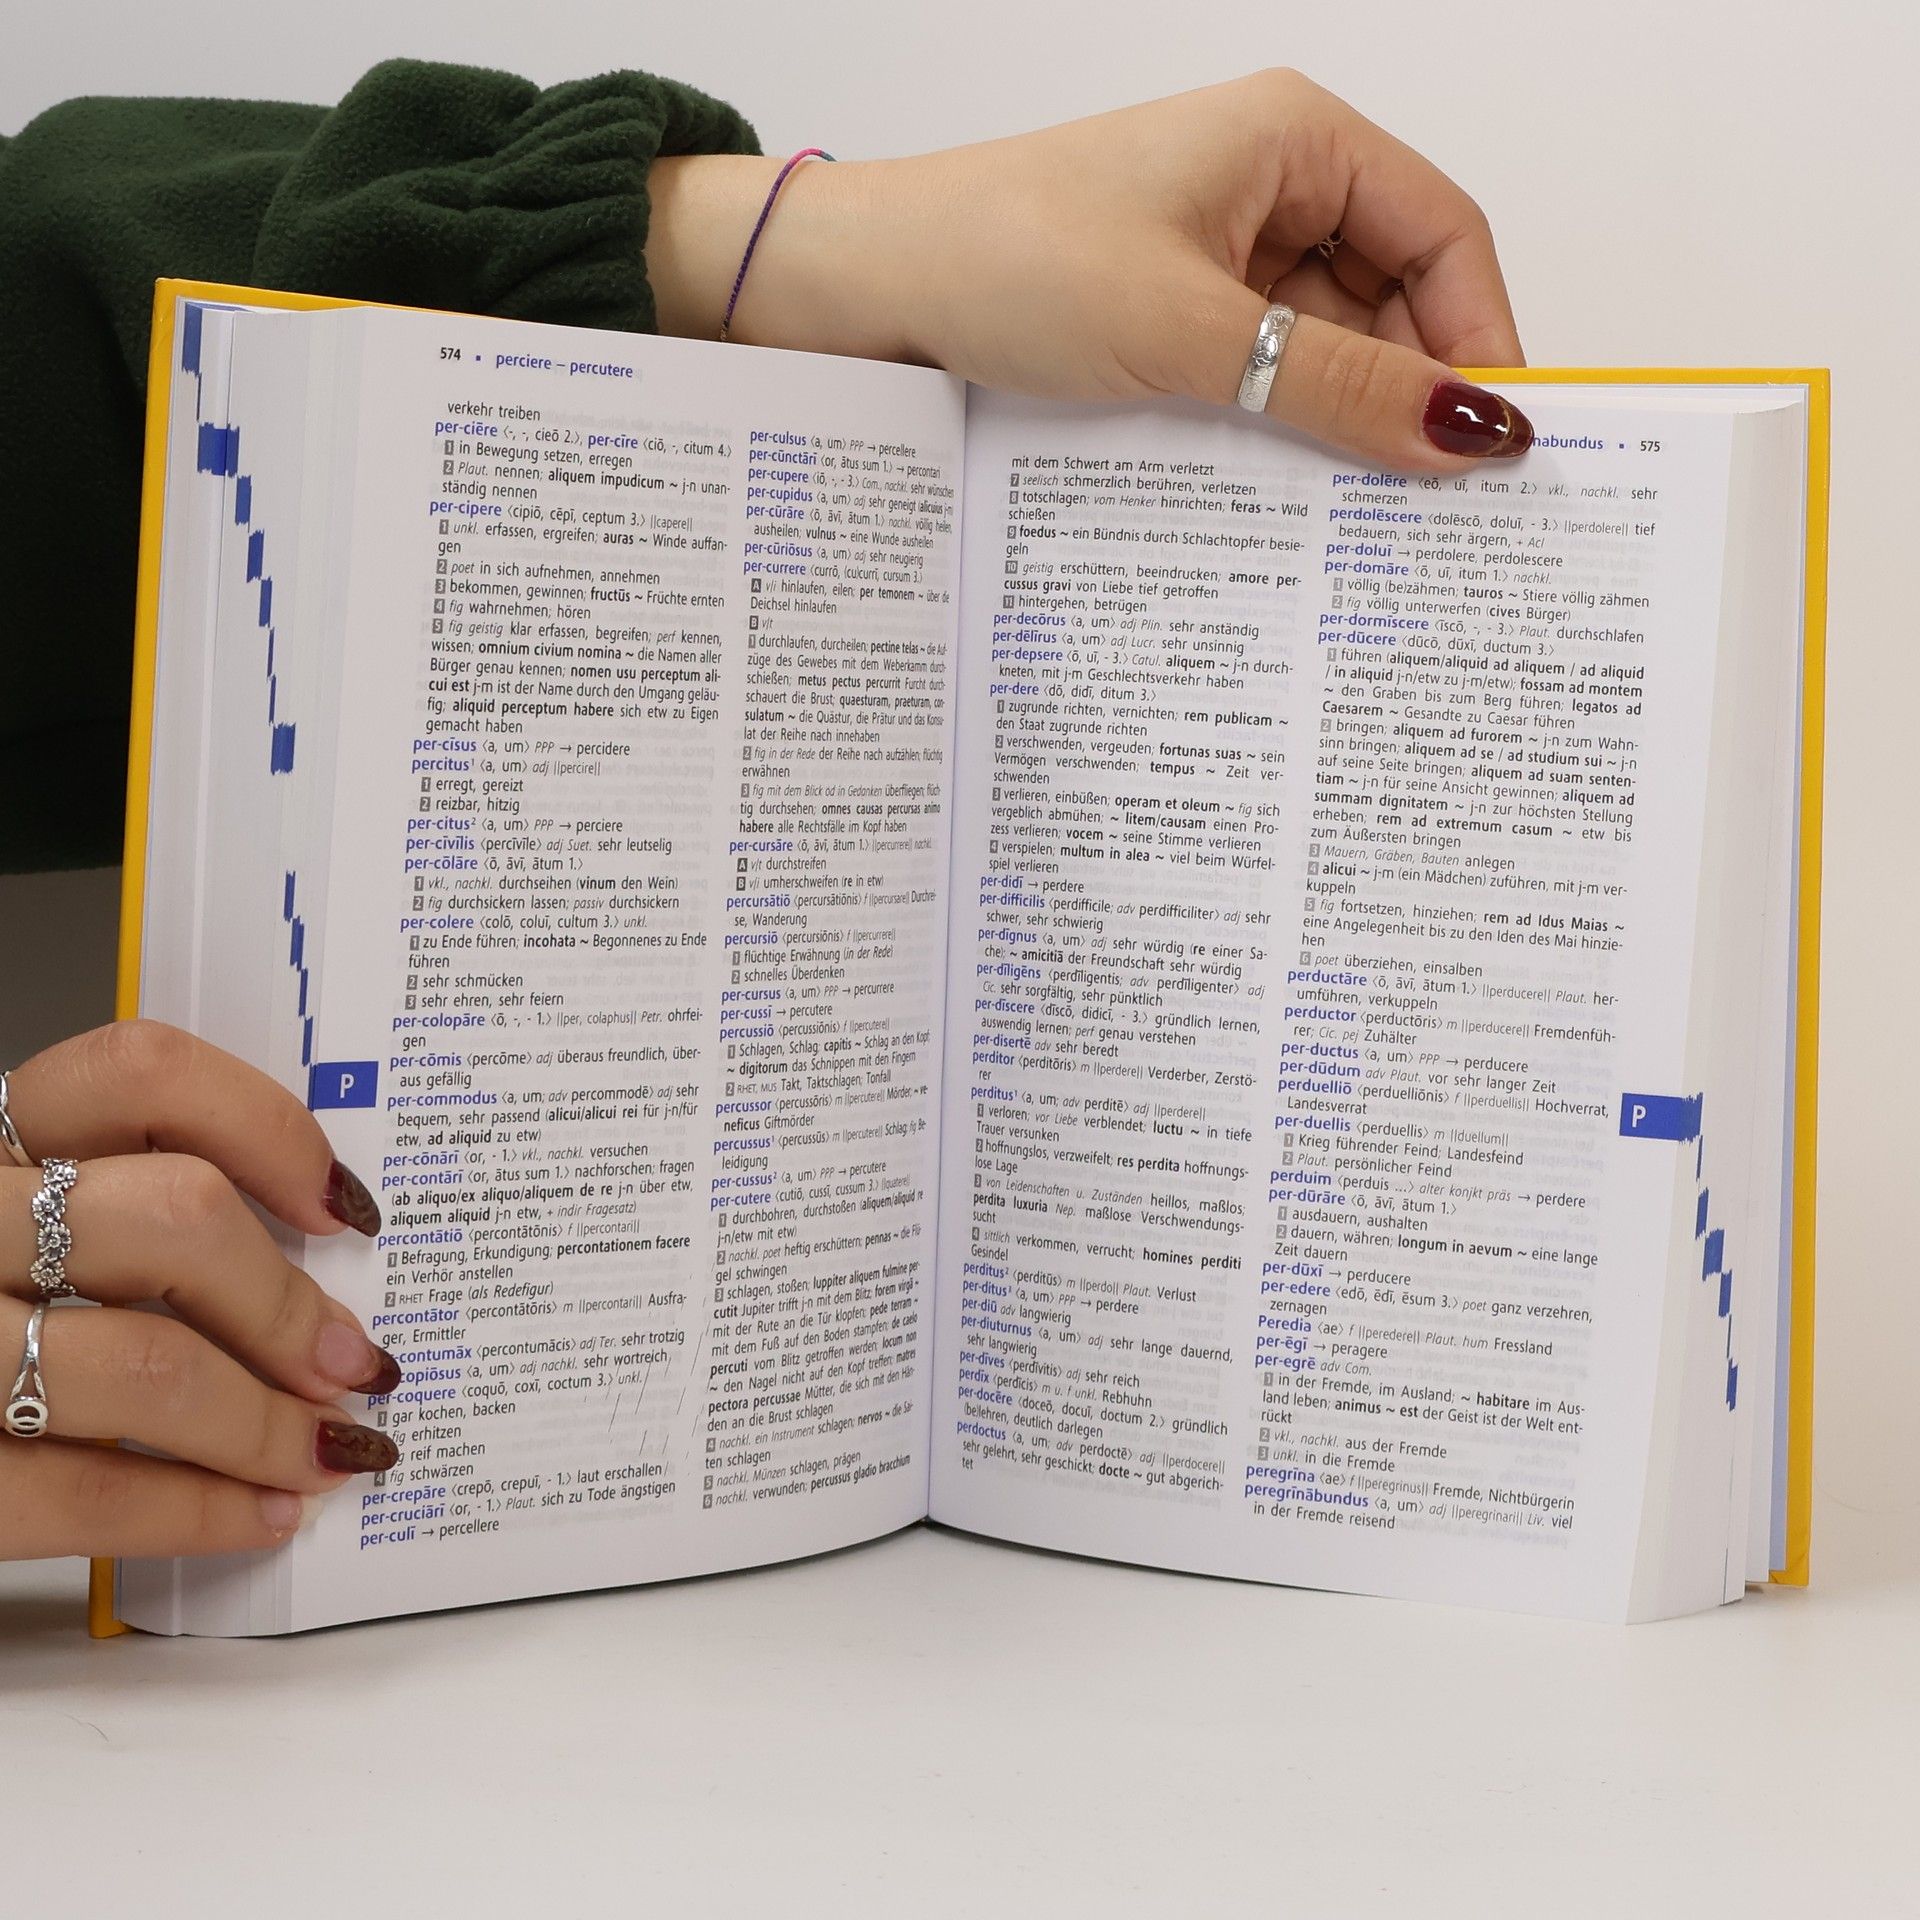 574 ▪ perciere – percutere
verkehr treiben
per-ciēre ⟨-, -, cieō 2.⟩, per-cīre ⟨ciō, -, citum 4.⟩
1 in Bewegung setzen, erregen
2 Plaut. nennen; aliquem impudicum ~ j-n unan-
ständig nennen
per-cipere ⟨cipiō, cēpī, ceptum 3.⟩ ||capere||
1 unkl. erfassen, ergreifen; auras ~ Winde auffan-
gen
2 poet in sich aufnehmen, annehmen
3 bekommen, gewinnen; fructūs ~ Früchte ernten
4 fig wahrnehmen; hören
5 fig geistig klar erfassen, begreifen; perf kennen,
wissen; omnium civium nomina ~ die Namen aller
Bürger genau kennen; nomen usu perceptum ali-
cui est j-m ist der Name durch den Umgang geläu-
fig; aliquid perceptum habere sich etw zu Eigen
gemacht haben
per-cīsus ⟨a, um⟩ PPP → percidere
percitus¹ ⟨a, um⟩ adj ||percire||
1 erregt, gereizt
2 reizbar, hitzig
per-citus² ⟨a, um⟩ PPP → perciere
per-cīvīlis ⟨percīvīle⟩ adj Suet. sehr leutselig
per-cōlāre ⟨ō, āvī, ātum 1.⟩
1 vkl., nachkl. durchseihen (vinum den Wein)
2 fig durchsickern lassen; passiv durchsickern
per-colere ⟨colō, coluī, cultum 3.⟩ unkl.
1 zu Ende führen; incohata ~ Begonnenes zu Ende
führen
2 sehr schmücken
3 sehr ehren, sehr feiern
per-colopāre ⟨ō, -, - 1.⟩ ||per, colaphus|| Petr. ohrfei-
gen
per-cōmis ⟨percōme⟩ adj überaus freundlich, über-
aus gefällig
per-commodus ⟨a, um; adv percommodē⟩ adj sehr
bequem, sehr passend (alicui/alicui rei für j-n/für
etw, ad aliquid zu etw)
per-cōnārī ⟨or, - 1.⟩ vkl., nachkl. versuchen
per-contārī ⟨or, ātus sum 1.⟩ nachforschen; fragen
(ab aliquo/ex aliquo/aliquem de re j-n über etw,
aliquem aliquid j-n etw, + indir Fragesatz)
percontātiō ⟨percontātōnis⟩ f ||percontari||
1 Befragung, Erkundigung; percontationem facere
ein Verhör anstellen
2 RHET Frage (als Redefigur)
percontātor ⟨percontātōris⟩ m ||percontari|| Ausfra-
ger, Ermittler
-contumāx ⟨percontumācis⟩ adj Ter. sehr trotzig
copiōsus ⟨a, um⟩ adj nachkl. sehr wortreich
per-coquere ⟨coquō, coxī, coctum 3.⟩ unkl.
1 gar kochen, backen
fig erhitzen
g reif machen
4 fig schwärzen
per-crepāre ⟨crepō, crepuī, - 1.⟩ laut erschallen
per-cruciārī ⟨or, - 1.⟩ Plaut. sich zu Tode ängstigen
per-culī → percellere
P
per-culsus ⟨a, um⟩ PPP → percellere
per-cūnctārī ⟨or, ātus sum 1.⟩ → percontari
per-cupere ⟨iō, -, - 3.⟩ Com., nachkl. sehr wünschen
per-cupidus ⟨a, um⟩ adj sehr geneigt (alicuius j-m)
per-cūrāre ⟨ō, āvī, ātum 1.⟩ nachkl. völlig heilen,
ausheilen; vulnus ~ eine Wunde ausheilen
per-cūriōsus ⟨a, um⟩ adj sehr neugierig
per-currere ⟨currō, (cu)currī, cursum 3.⟩
A v/i hinlaufen, eilen; per temonem ~ über die
Deichsel hinlaufen
B v/t
1 durchlaufen, durcheilen; pectine telas ~ die Auf-
züge des Gewebes mit dem Weberkamm durch-
schießen; metus pectus percurrit Furcht durch-
schauert die Brust; quaesturam, praeturam, con-
sulatum ~ die Quästur, die Prätur und das Konsu-
lat der Reihe nach innehaben
2 fig in der Rede der Reihe nach aufzählen; flüchtig
erwähnen
3 fig mit dem Blick od in Gedanken überfliegen; flüch-
tig durchsehen; omnes causas percursas animo
habere alle Rechtsfälle im Kopf haben
per-cursāre ⟨ō, āvī, ātum 1.⟩ ||percurrere|| nachkl.
A v/t durchstreifen
B v/i umherschweifen (re in etw)
percursātiō ⟨percursātiōnis⟩ f ||percursare|| Durchrei-
se, Wanderung
percursiō ⟨percursiōnis⟩ f ||percurrere||
1 flüchtige Erwähnung (in der Rede)
2 schnelles Überdenken
per-cursus ⟨a, um⟩ PPP → percurrere
per-cussī → percutere
percussiō ⟨percussiōnis⟩ f ||percutere||
1 Schlagen, Schlag; capitis ~ Schlag an den Kopf;
~ digitorum das Schnippen mit den Fingern
2 RHET, MUS Takt, Taktschlagen; Tonfall
percussor ⟨percussōris⟩ m ||percutere|| Mörder; ~ ve-
neficus Giftmörder
percussus¹ ⟨percussūs⟩ m ||percutere|| Schlag; fig Be-
leidigung
per-cussus² ⟨a, um⟩ PPP → percutere
per-cutere ⟨cutiō, cussī, cussum 3.⟩ ||quatere||
1 durchbohren, durchstoßen (aliquem/aliquid re
j-n/etw mit etw)
2 nachkl. poet heftig erschüttern; pennas ~ die Flü-
gel schwingen
3 schlagen, stoßen; Iuppiter aliquem fulmine per-
cutit Jupiter trifft j-n mit dem Blitz; forem virgā ~
mit der Rute an die Tür klopfen; pede terram ~
mit dem Fuß auf den Boden stampfen; de caelo
percuti vom Blitz getroffen werden; locum non
~ den Nagel nicht auf den Kopf treffen; matres
pectora percussae Mütter, die sich mit den Hän-
den an die Brust schlagen
4 nachkl. ein Instrument schlagen; nervos ~ die Sai-
ten schlagen
5 nachkl. Münzen schlagen, prägen
6 nachkl. verwunden; percussus gladio bracchium
nabundus ▪ 575
mit dem Schwert am Arm verletzt
7 seelisch schmerzlich berühren, verletzen
8 totschlagen; vom Henker hinrichten; feras ~ Wild
schießen
9 foedus ~ ein Bündnis durch Schlachtopfer besie-
geln
10 geistig erschüttern, beeindrucken; amore per-
cussus gravi von Liebe tief getroffen
11 hintergehen, betrügen
per-decōrus ⟨a, um⟩ adj Plin. sehr anständig
per-dēlīrus ⟨a, um⟩ adj Lucr. sehr unsinnig
per-depsere ⟨ō, uī, - 3.⟩ Catul. aliquem ~ j-n durch-
kneten, mit j-m Geschlechtsverkehr haben
per-dere ⟨dō, didī, ditum 3.⟩
1 zugrunde richten, vernichten; rem publicam ~
den Staat zugrunde richten
2 verschwenden, vergeuden; fortunas suas ~ sein
Vermögen verschwenden; tempus ~ Zeit ver-
schwenden
3 verlieren, einbüßen; operam et oleum ~ fig sich
vergeblich abmühen; ~ litem/causam einen Pro-
zess verlieren; vocem ~ seine Stimme verlieren
4 verspielen; multum in alea ~ viel beim Würfel-
spiel verlieren
per-didī → perdere
per-difficilis ⟨perdifficile; adv perdifficiliter⟩ adj sehr
schwer, sehr schwierig
per-dīgnus ⟨a, um⟩ adj sehr würdig (re einer Sa-
che); ~ amicitiā der Freundschaft sehr würdig
per-dīligēns ⟨perdīligentis; adv perdīligenter⟩ adj
Cic. sehr sorgfältig, sehr pünktlich
per-discere ⟨dīscō, didicī, - 3.⟩ gründlich lernen,
auswendig lernen; perf genau verstehen
per-disertē adv sehr beredt
perditor ⟨perditōris⟩ m ||perdere|| Verderber, Zerstö-
rer
perditus¹ ⟨a, um; adv perditē⟩ adj ||perdere||
1 verloren; vor Liebe verblendet; luctu ~ in tiefe
Trauer versunken
2 hoffnungslos, verzweifelt; res perdita hoffnungs-
lose Lage
3 von Leidenschaften u. Zuständen heillos, maßlos;
perdita luxuria Nep. maßlose Verschwendungs-
sucht
4 sittlich verkommen, verrucht; homines perditi
Gesindel
perditus² ⟨perditūs⟩ m ||perdo|| Plaut. Verlust
per-ditus³ ⟨a, um⟩ PPP → perdere
per-diū adv langwierig
per-diuturnus ⟨a, um⟩ adj sehr lange dauernd,
sehr langwierig
per-dīves ⟨perdīvitis⟩ adj sehr reich
perdīx ⟨perdīcis⟩ m u. f unkl. Rebhuhn
per-docēre ⟨doceō, docuī, doctum 2.⟩ gründlich
(be)lehren, deutlich darlegen
perdoctus ⟨a, um; adv perdoctē⟩ adj ||perdocere||
sehr gelehrt, sehr geschickt; docte ~ gut abgerich-
tet
per-dolēre ⟨eō, uī, itum 2.⟩ vkl., nachkl. sehr
schmerzen
perdolēscere ⟨dolēscō, doluī, - 3.⟩ ||perdolere|| tief
bedauern, sich sehr ärgern, + AcI
per-doluī → perdolere, perdolescere
per-domāre ⟨ō, uī, itum 1.⟩ nachkl.
1 völlig (be)zähmen; tauros ~ Stiere völlig zähmen
2 fig völlig unterwerfen (cives Bürger)
per-dormīscere ⟨īscō, -, - 3.⟩ Plaut. durchschlafen
per-dūcere ⟨dūcō, dūxī, ductum 3.⟩
1 führen (aliquem/aliquid ad aliquem / ad aliquid
/ in aliquid j-n/etw zu j-m/etw); fossam ad montem
~ den Graben bis zum Berg führen; legatos ad
Caesarem ~ Gesandte zu Caesar führen
2 bringen; aliquem ad furorem ~ j-n zum Wahn-
sinn bringen; aliquem ad se / ad studium sui ~ j-n
auf seine Seite bringen; aliquem ad suam senten-
tiam ~ j-n für seine Ansicht gewinnen; aliquem ad
summam dignitatem ~ j-n zur höchsten Stellung
erheben; rem ad extremum casum ~ etw bis
zum Äußersten bringen
3 Mauern, Gräben, Bauten anlegen
4 alicui ~ j-m (ein Mädchen) zuführen, mit j-m ver-
kuppeln
5 fig fortsetzen, hinziehen; rem ad Idus Maias ~
eine Angelegenheit bis zu den Iden des Mai hinzie-
hen
6 poet überziehen, einsalben
perductāre ⟨ō, āvī, ātum 1.⟩ ||perducere|| Plaut. her-
umführen, verkuppeln
perductor ⟨perductōris⟩ m ||perducere|| Fremdenfüh-
rer; Cic. pej Zuhälter
per-ductus ⟨a, um⟩ PPP → perducere
per-dūdum adv Plaut. vor sehr langer Zeit
perduelliō ⟨perduelliōnis⟩ f ||perduellis|| Hochverrat,
Landesverrat
per-duellis ⟨perduellis⟩ m ||duellum||
1 Krieg führender Feind; Landesfeind
2 Plaut. persönlicher Feind
perduim ⟨perduis ...⟩ alter konjkt präs → perdere
per-dūrāre ⟨ō, āvī, ātum 1.⟩
1 ausdauern, aushalten
2 dauern, währen; longum in aevum ~ eine lange
Zeit dauern
per-dūxī → perducere
per-edere ⟨edō, ēdī, ēsum 3.⟩ poet ganz verzehren,
zernagen
Peredia ⟨ae⟩ f ||peredere|| Plaut. hum Fressland
per-ēgī → peragere
per-egrē adv Com.
1 in der Fremde, im Ausland; ~ habitare im Aus-
land leben; animus ~ est der Geist ist der Welt ent-
rückt
2 vkl., nachkl. aus der Fremde
3 unkl. in die Fremde
peregrīna ⟨ae⟩ f ||peregrinus|| Fremde, Nichtbürgerin
peregrīnābundus ⟨a, um⟩ adj ||peregrinari|| Liv. viel
in der Fremde reisend
P